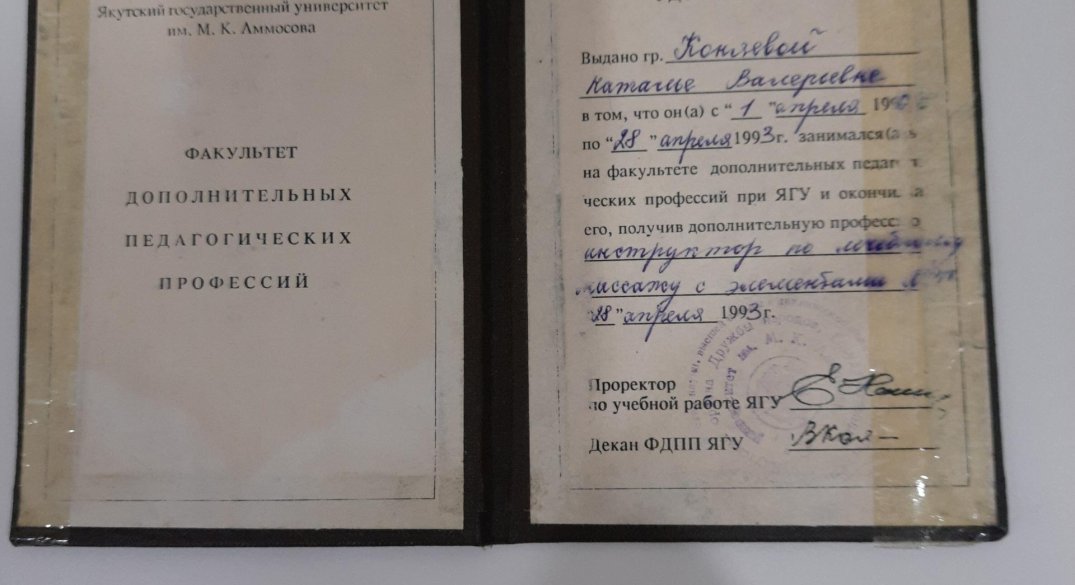 Якутский государственный университет
им. М. К. Аммосова
ФАКУЛЬТЕТ
ДОПОЛНИТЕЛЬНЫХ
ПЕДАГОГИЧЕСКИХ
ПРОФЕССИЙ
Выдано гр. Коняевой
Наталье Валерьевне
в том, что он(а) с “ 1 ” апреля 199
по “28” апреля 1993г. занимался(а
на факультете дополнительных педаг
ческих профессий при ЯГУ и окончи а
его, получив дополнительную професс
инструктор по лечебному
массажу с элементами
“28” апреля 1993г.
Дружбы народов
им. М. К.
Проректор
по учебной работе ЯГУ
Декан ФДПП ЯГУ